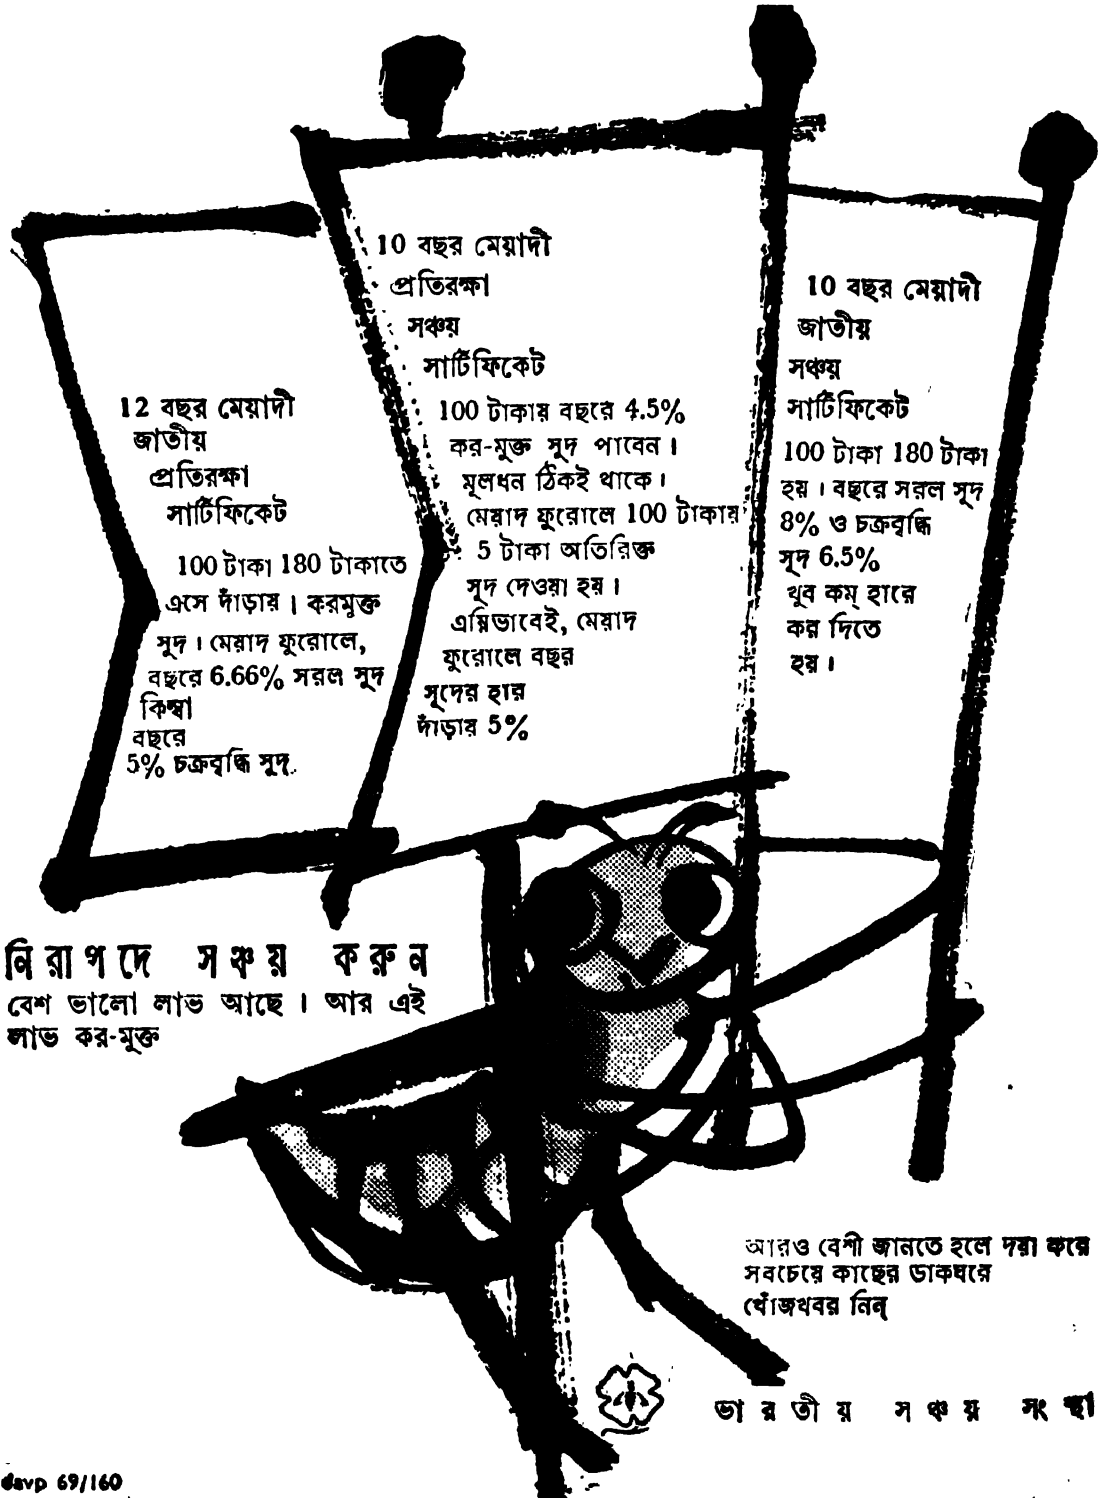 12 বছর মেয়াদী
জাতীয়
প্রতিরক্ষা
সার্টিফিকেট
100 টাকা 180 টাকাতে
এসে দাঁড়ায়। করমুক্ত
সুদ। মেয়াদ ফুরোলে,
বছরে 6.66% সরল সুদ
কিম্বা
বছরে
5% চক্রবৃদ্ধি সুদ
10 বছর মেয়াদী
প্রতিরক্ষা
সঞ্চয়
সার্টিফিকেট
100 টাকায় বছরে 4.5%
কর-মুক্ত সুদ পাবেন।
মূলধন ঠিকই থাকে।
মেয়াদ ফুরোলে 100 টাকায়
5 টাকা অতিরিক্ত
সুদ দেওয়া হয়।
এম্নিভাবেই, মেয়াদ
ফুরোলে বছর
সুদের হার
দাঁড়ায় 5%
10 বছর মেয়াদী
জাতীয়
সঞ্চয়
সার্টিফিকেট
100 টাকা 180 টাকা
হয়। বছরে সরল সুদ
8% ও চক্রবৃদ্ধি
সুদ 6.5%
খুব কম্ হারে
কর দিতে
হয়।
নিরাপদে সঞ্চয় করুন
বেশ ভালো লাভ আছে। আর এই
লাভ কর-মুক্ত
আরও বেশী জানতে হলে দয়া করে
সবচেয়ে কাছের ডাকঘরে
খোঁজখবর নিন্
ভারতীয় সঞ্চয় সংস্থা
davp 69/160